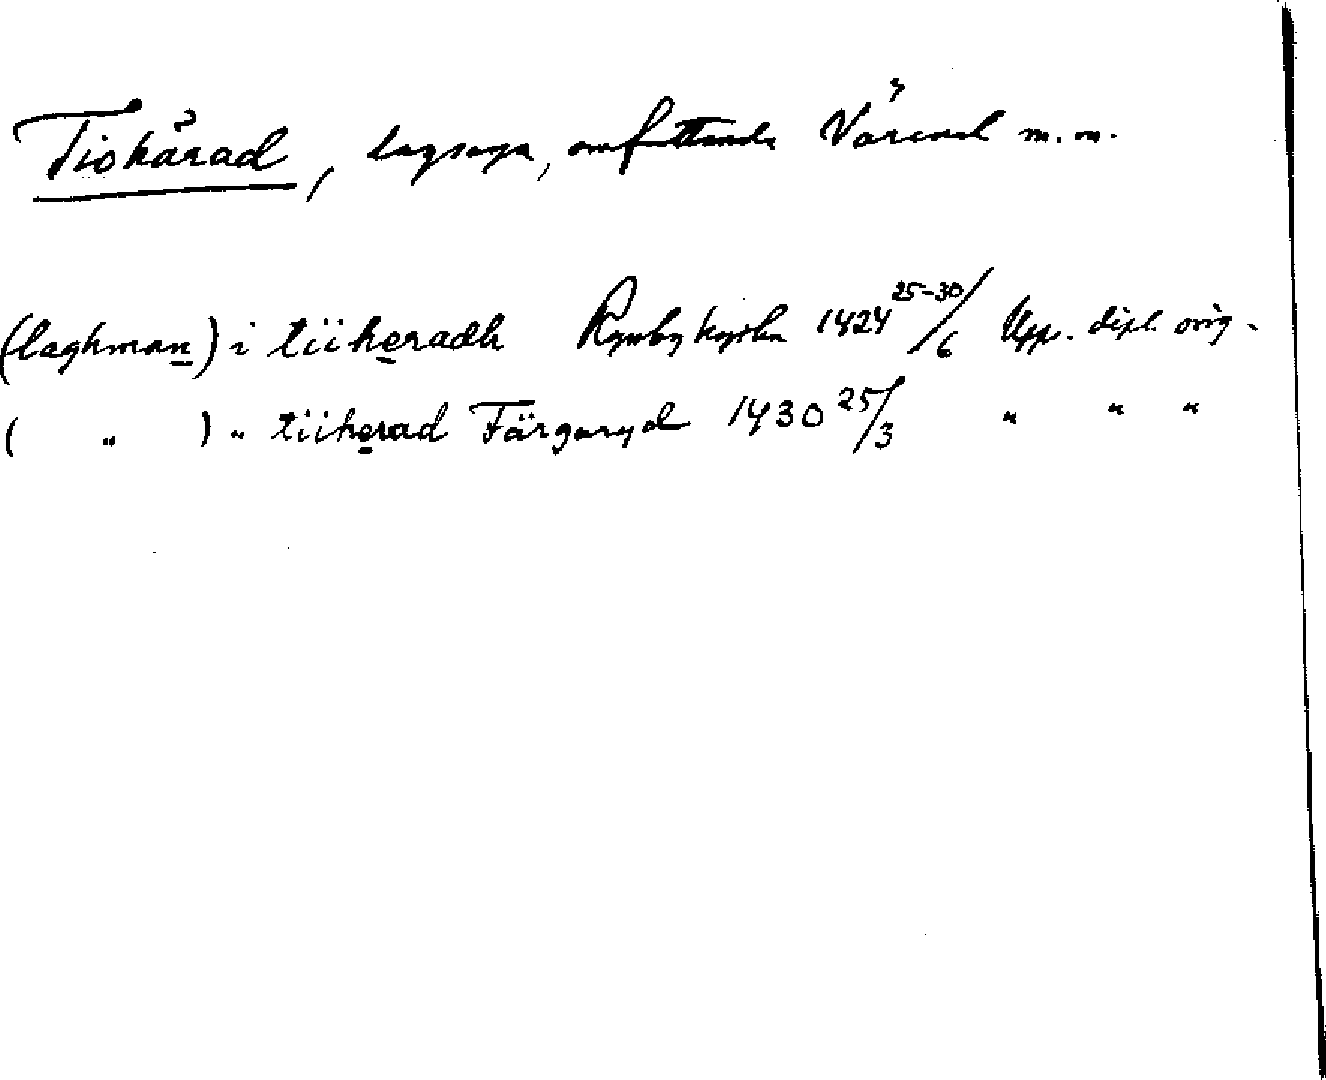 Tiohärad, lagsaga, omfattande Värend m.m.
(laghman) i tiiheradh Rymby kyrka 1424 25-30/6 Upp. dipl. orig.
( " ) " tiiherad Färgaryd 1430 25/3 " " "